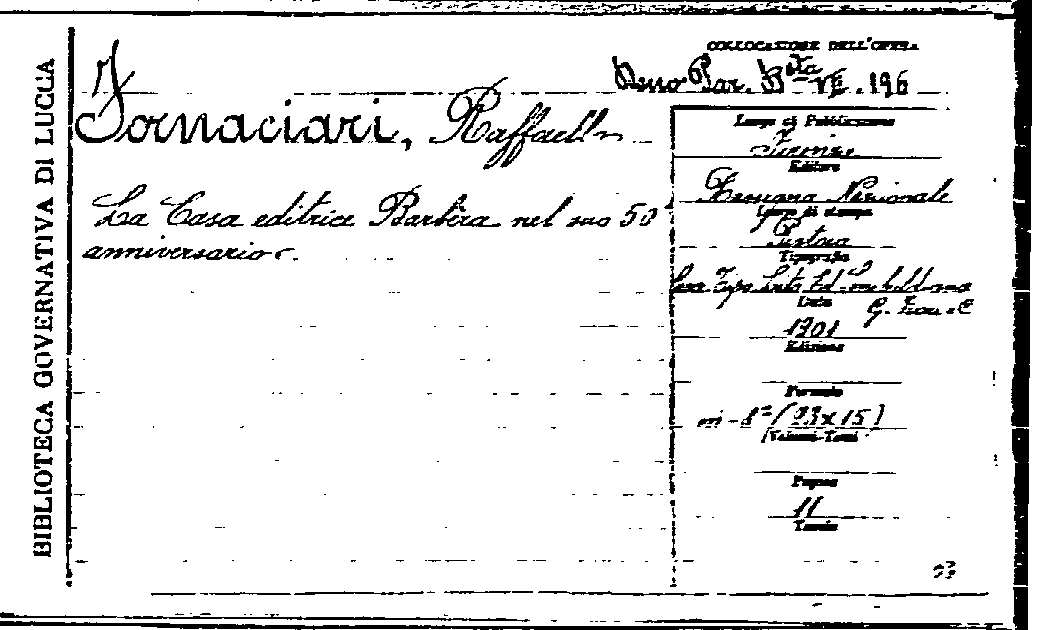 BIBLIOTECA GOVERNATIVA DI LUCCA
COLLOCAZIONE DELL'OPERA
Bta VII. 196
Fornaciari, Raffaello
La Casa editrice Barbèra nel suo 50°
anniversario.
Luogo di Pubblicazione
Firenze
Editore
Rassegna Nazionale
Luogo di stampa
Pistoia
Tipografia
Casa Tipo Lito Ed.
Data
G. e C
1901
Edizione
Formato
in-8° (23x15)
(Volumi-Tomi
Pagine
11
Tavole